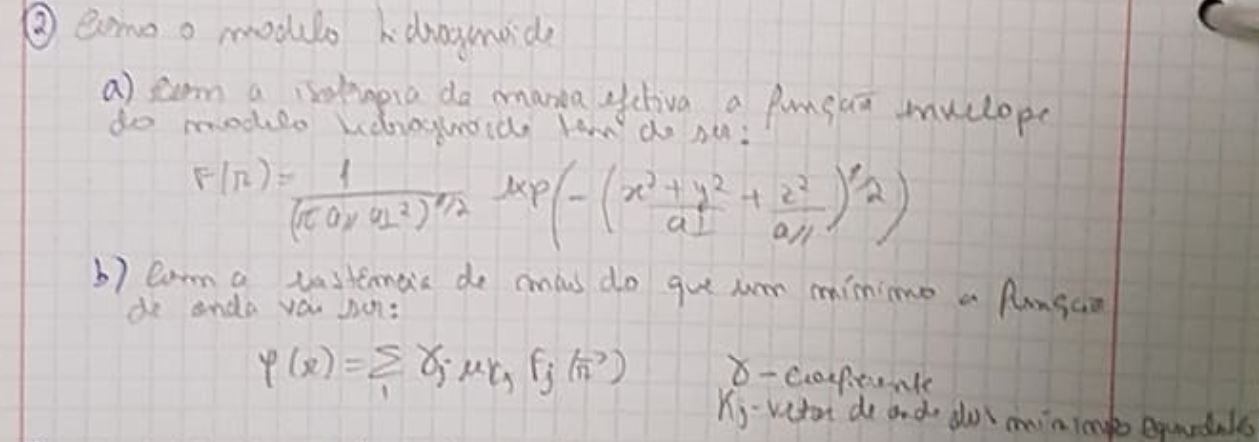 ② Como o modelo hidrogenoide
a) Com a isotropia da massa efetiva a função envelope
do modelo hidrogenoide tem de ser:
F(r) = 1/(π a∥ a⊥²)^1/2 exp(-((x²+y²)/a⊥ + z²/a∥)^1/2)
b) Com a existência de mais do que um mínimo a função
de onda vai ser:
φ(r) = Σ γj μkj Fj(r) γ - coeficiente
Kj - vetor de onda dos mínimos